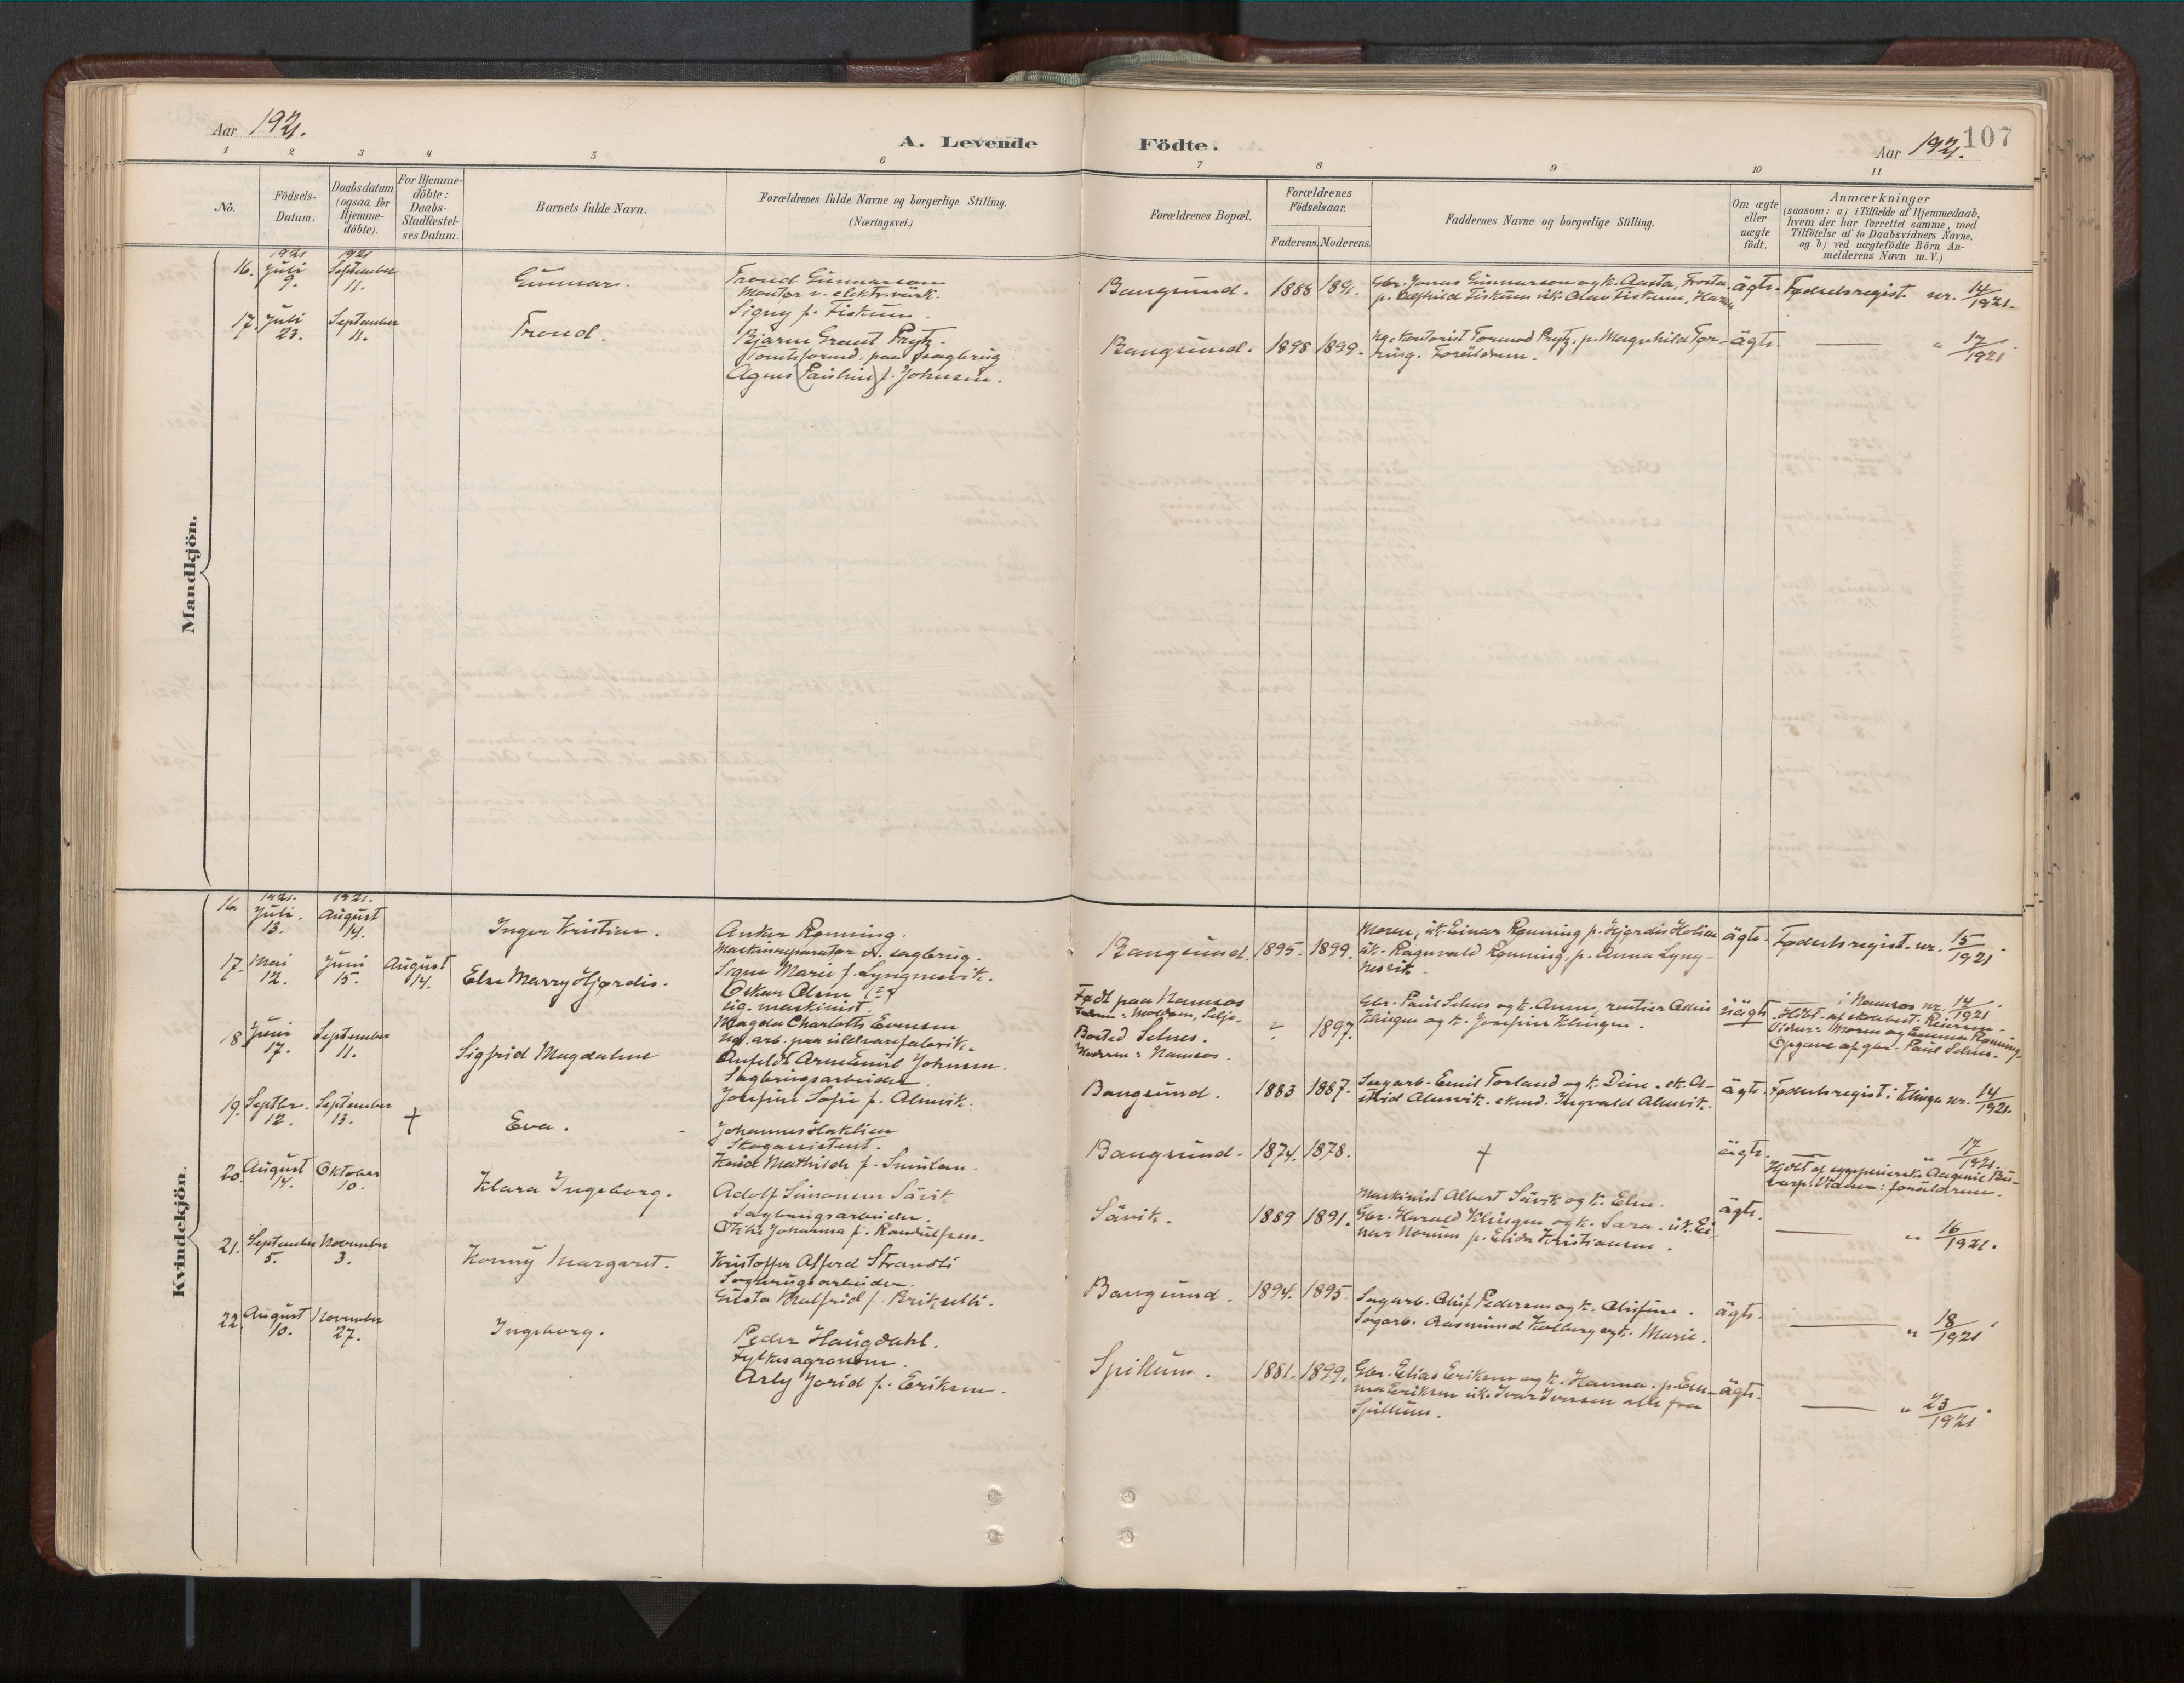 Aar 1921.
A. Levende Födte.
107
Aar 1921.
1 2 3 4 5 6 7 8 9 10 11
No.
Födsels-
Datum.
Daabsdatum
(ogsaa for
Hjemme-
döbte).
For Hjemme-
döbte:
Daabs-
Stadfæstel-
ses Datum.
Barnets fulde Navn.
Forældrenes fulde Navne og borgerlige Stilling.
(Næringsvei.)
Forældrenes Bopæl.
Forældrenes
Födselsaar.
Faderens. Moderens.
Faddernes Navne og borgerlige Stilling.
Om ægte
eller
uægte
födt.
Anmærkninger
(saasom: a) i Tilfælde af Hjemmedaab,
hvem der har forrettet samme, med
Tilföielse af to Daabsvidners Navne.
og b) ved uægtefödte Börn An-
melderens Navn m. V.)
Mandkjön.
16.
1921
Juli
9.
1921
September
11.
Gunnar.
Trond Gunnarson
Montør v. elektrverk.
Signy f. Fiskum.
Bangsund.
1888 1891.
Gbr. Jonas Gunnarson og k. Aasta, Frosta
p. Ragnhild Fiskum uk. Olav Fiskum,
ägte.
Fødselsregist. nr. 14/1921.
17.
Juli
23.
September
11.
Trond.
Bjarne Greout Prytz.
Tomteformd. paa sagbrug
Agnes (Pauline) f. Johnsen.
Bangsund.
1898 1899.
Ug. Kontorist Tormod Prytz, p. Magnhild Tør-
ring. Foräldrene.
ägte.
— " 17/1921.
Kvindekjön.
16.
1921.
Juli.
13.
1921.
August
14.
Inger Kristine.
Anker Rønning.
Maskinreparatør v. sagbrug.
Signe Marie f. Lyngnesvik.
Bangsund.
1895. 1899.
Moren, uk. Einar Rønning p. Hjørdis Holien
uk. Ragnvald Rønning, p. Anna Lyng-
nesvik.
ägte.
Fødselsregist. nr. 15/1921.
17.
Mai
12.
Juni
15.
August
14.
Else Marry Hjørdis.
Oskar Olsen (?)
ug. maskinist.
Magda Charlotte Evensen
ug. arb. paa uldvarefabrik.
Født paa Namsos
Bosted Selnes.
Moderen: Namsos.
1897.
Gbr. Paul Selnes og k. Anne, rentier Odin
Klingen og k. Josefine Klingen.
uägte
i Namsos nr. 14/1921.
Vidner: Moren og Emma Rønning.
Opgave af gbr. Paul Selnes.
18.
Juni
17.
September
11.
Sigfrid Magdalene
Anfeldt Arne Emil Johnsen.
Sagbrugsarbeider.
Josefine Sofie f. Almvik.
Bangsund.
1883 1887.
Sagarb. Emil Forland og k. Dine. ek. A-
strid Almvik. ekmd. Ingvald Almvik.
ägte.
Fødselsregist. i Klinga nr. 14/1921.
19.
Septbr.
12.
September
13.
†
Eva.
Johannes Haklien
Skogassistent.
Kaia Mathilde f. Smulan.
Bangsund.
1874. 1878.
†
ägte.
— " 17/1921.
Vidner: foräldrene.
20.
August
14.
Oktober
10.
Klara Ingeborg.
Adolf Simonsen Sävik
Sagbrugsarbeider.
Otilie Johanna f. Randulfsen.
Sävik.
1889 1891.
Maskinist Albert Sävik og k. Elen.
Gbr. Harald Klingen og k. Sara. uk. Ei-
nar Nonum p. Elida Kristiansen.
ägte.
— " 16/1921.
21.
September
5.
November
3.
Konny Margaret.
Kristoffer Alfred Strandli
Sagbrugsarbeider.
Gusta Kralfrid f. Brikselli.
Bangsund.
1894. 1895.
Sagarb. Oluf Pedersen og k. Olufine.
Sagarb. Aasmund Kolberg og k. Marie.
ägte.
— " 18/1921.
22.
August
10.
November
27.
Ingeborg.
Peder Haugdahl.
Fylkesagronom.
Arly Jorid f. Eriksen.
Spillum.
1881. 1899.
Gbr. Elias Eriksen og k. Hanna. p. Em-
ma Eriksen uk. Ivar Iversen alle fra
Spillum.
ägte.
— " 23/1921.